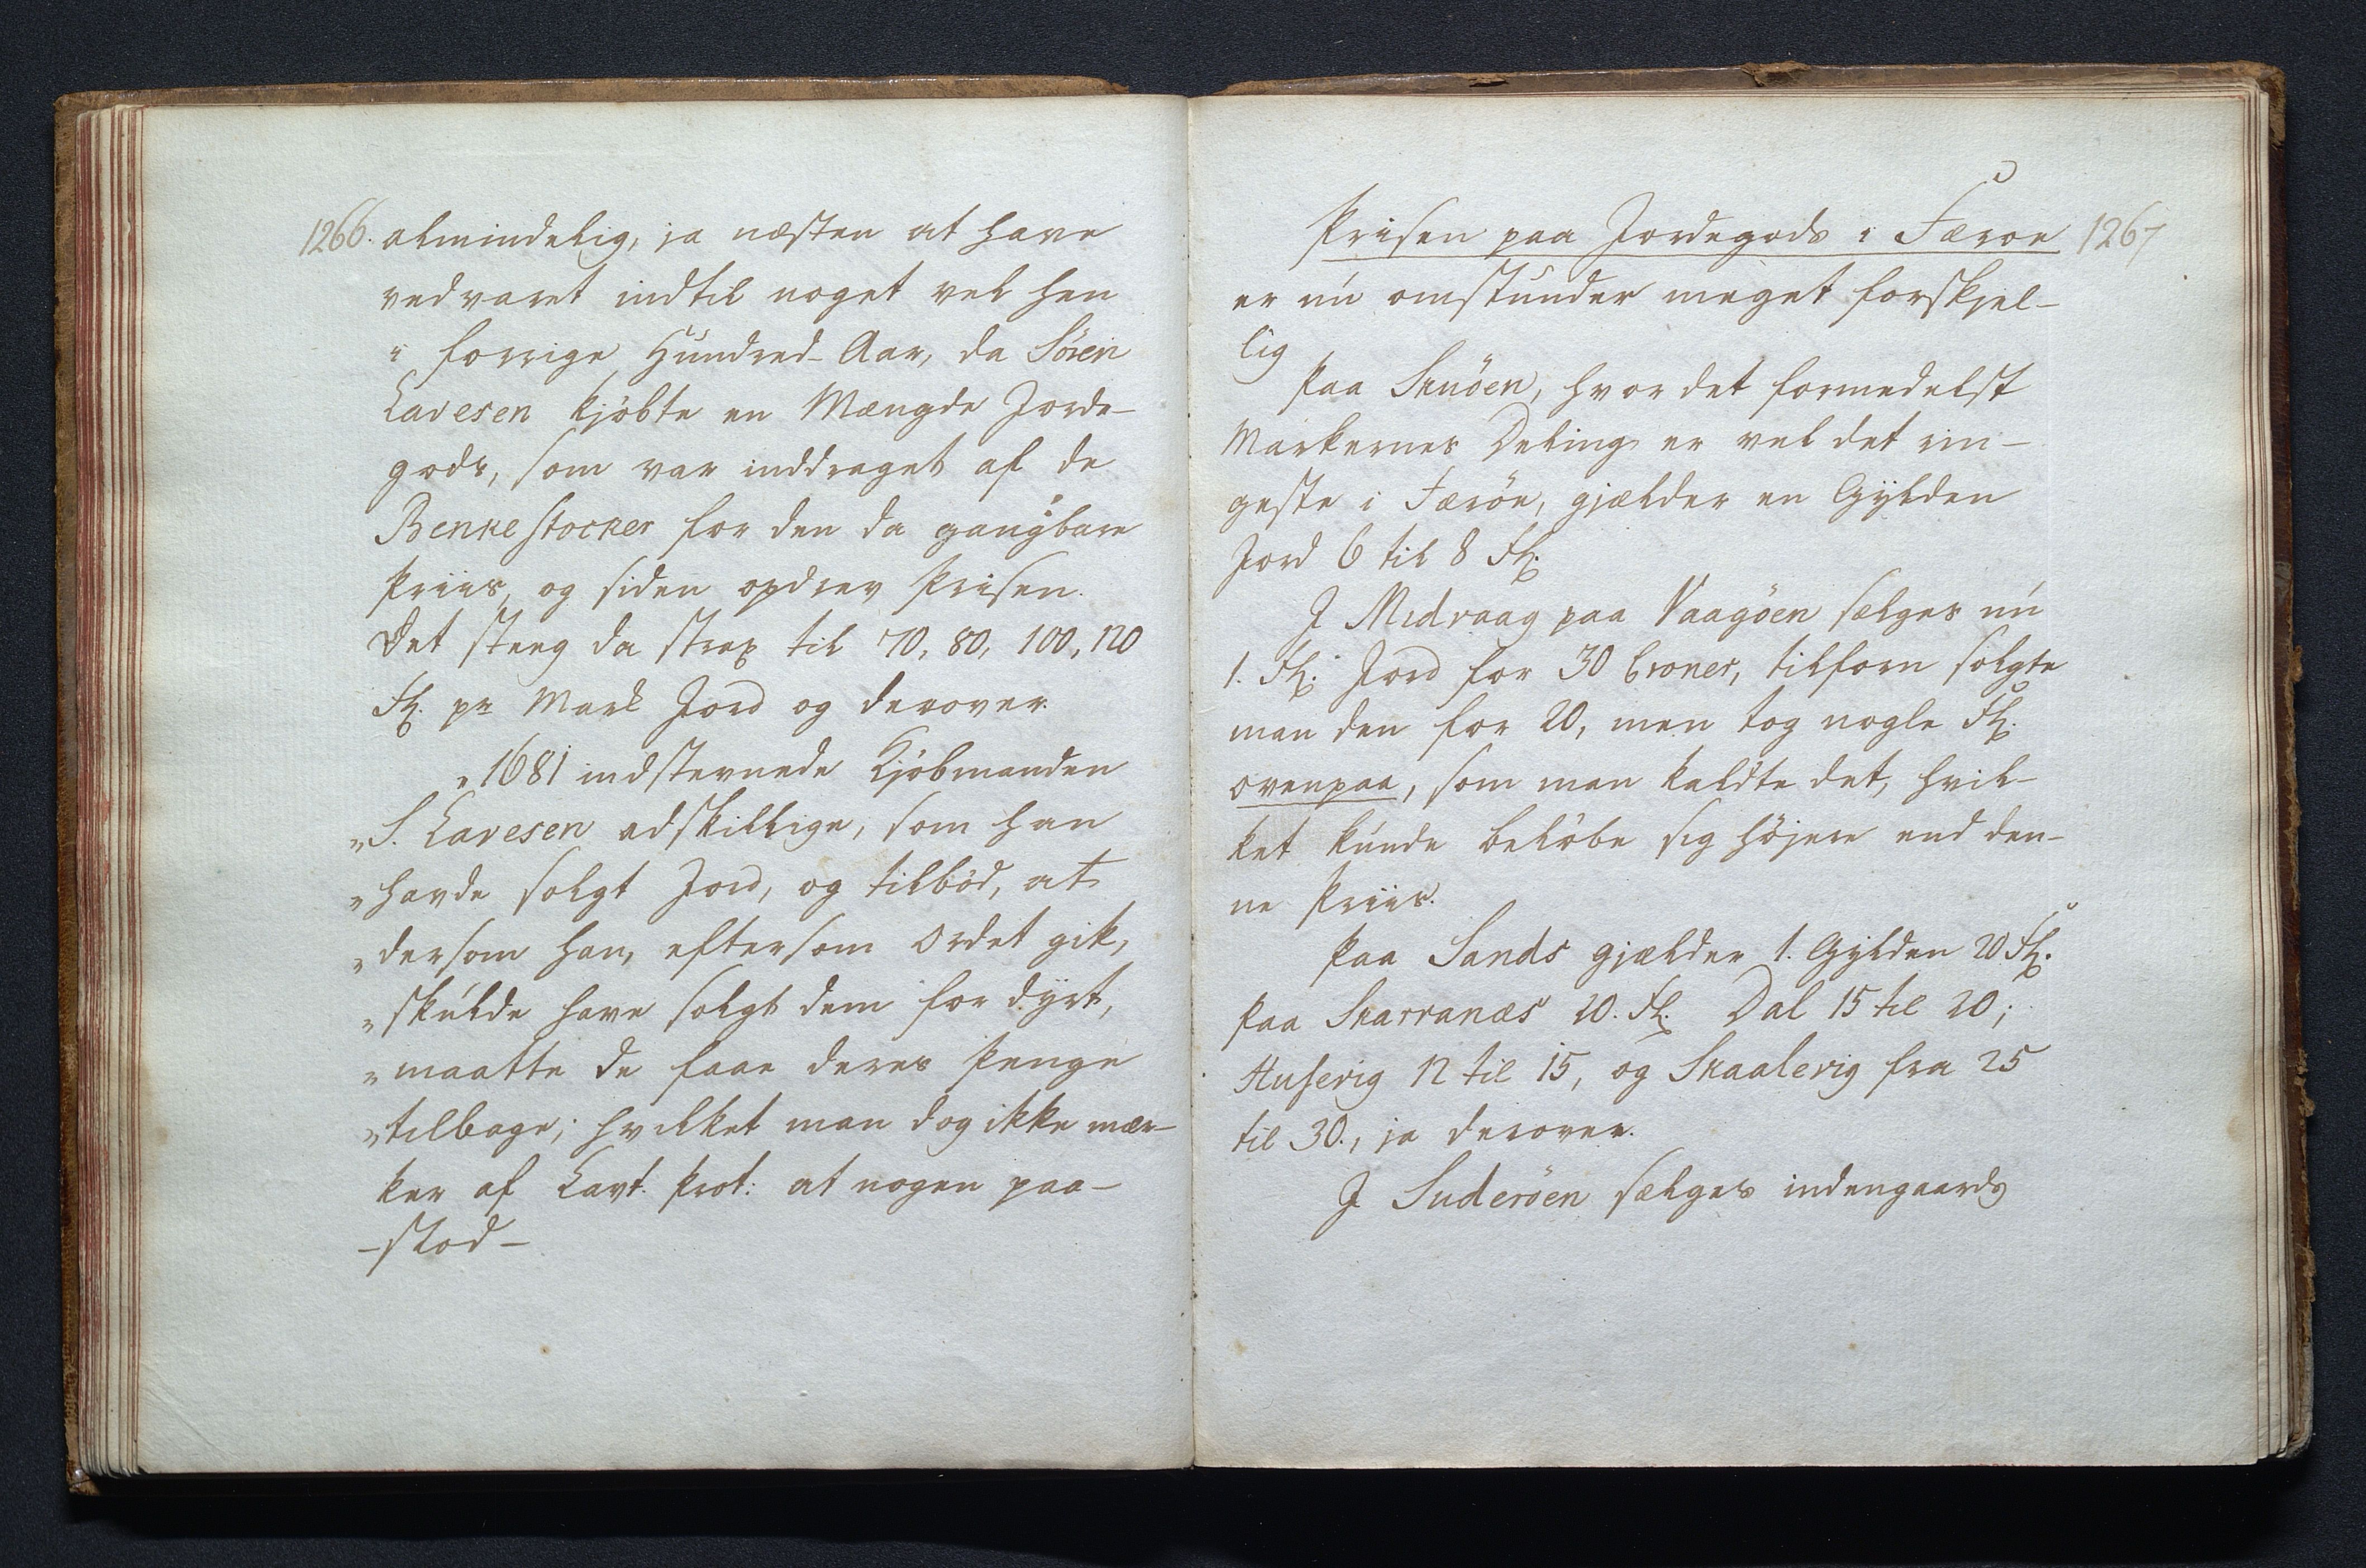 1266. almindelig, ja næsten at have
vedvaret indtil noget vel hen
i forrige Hundred-Aar, da Sören
Lavesen kjöbte en Mængde Jorde-
gods, som var inddraget af de
Benkestocker for den da gangbare
Priis, og siden opdrev Prisen.
Det steeg da strax til 70, 80, 100, 120
Fl. pr Mark Jord og derover.
„1681 indstevnede Kjöbmanden
„S. Lavesen adskillige, som han
„havde solgt Jord, og tilböd, at
„dersom han, eftersom Ordet gik,
„skulde have solgt dem for dyrt,
„maatte de faae deres Penge
„tilbage; hvilket man dog ikke mær-
ker af Lavt. Prot: at nogen paa-
-stod-
Prisen paa Jordegods i Færöe 1267
er nu omstunder meget forskjel-
lig
Paa Skuöen, hvor det formedelst
Markernes Deling er vel det rin-
geste i Færöe, gjælder en Gylden
Jord 6 til 8 Fl.
I Midvaag paa Vaagöen sælges nu
1. Fl. Jord for 30 Croner, tilforn solgte
man den for 20, men tog nogle Fl.
ovenpaa, som man kaldte det, hvil-
ket kunde belöbe sig höjere end den-
ne Priis.
Paa Sands gjælder 1. Gylden 20 Fl.
Paa Skarvanæs 20. Fl. Dal 15 til 20;
Husevig 12 til 15, og Skaalevig fra 25
til 30., ja derover.
I Suderöen sælges indengaards